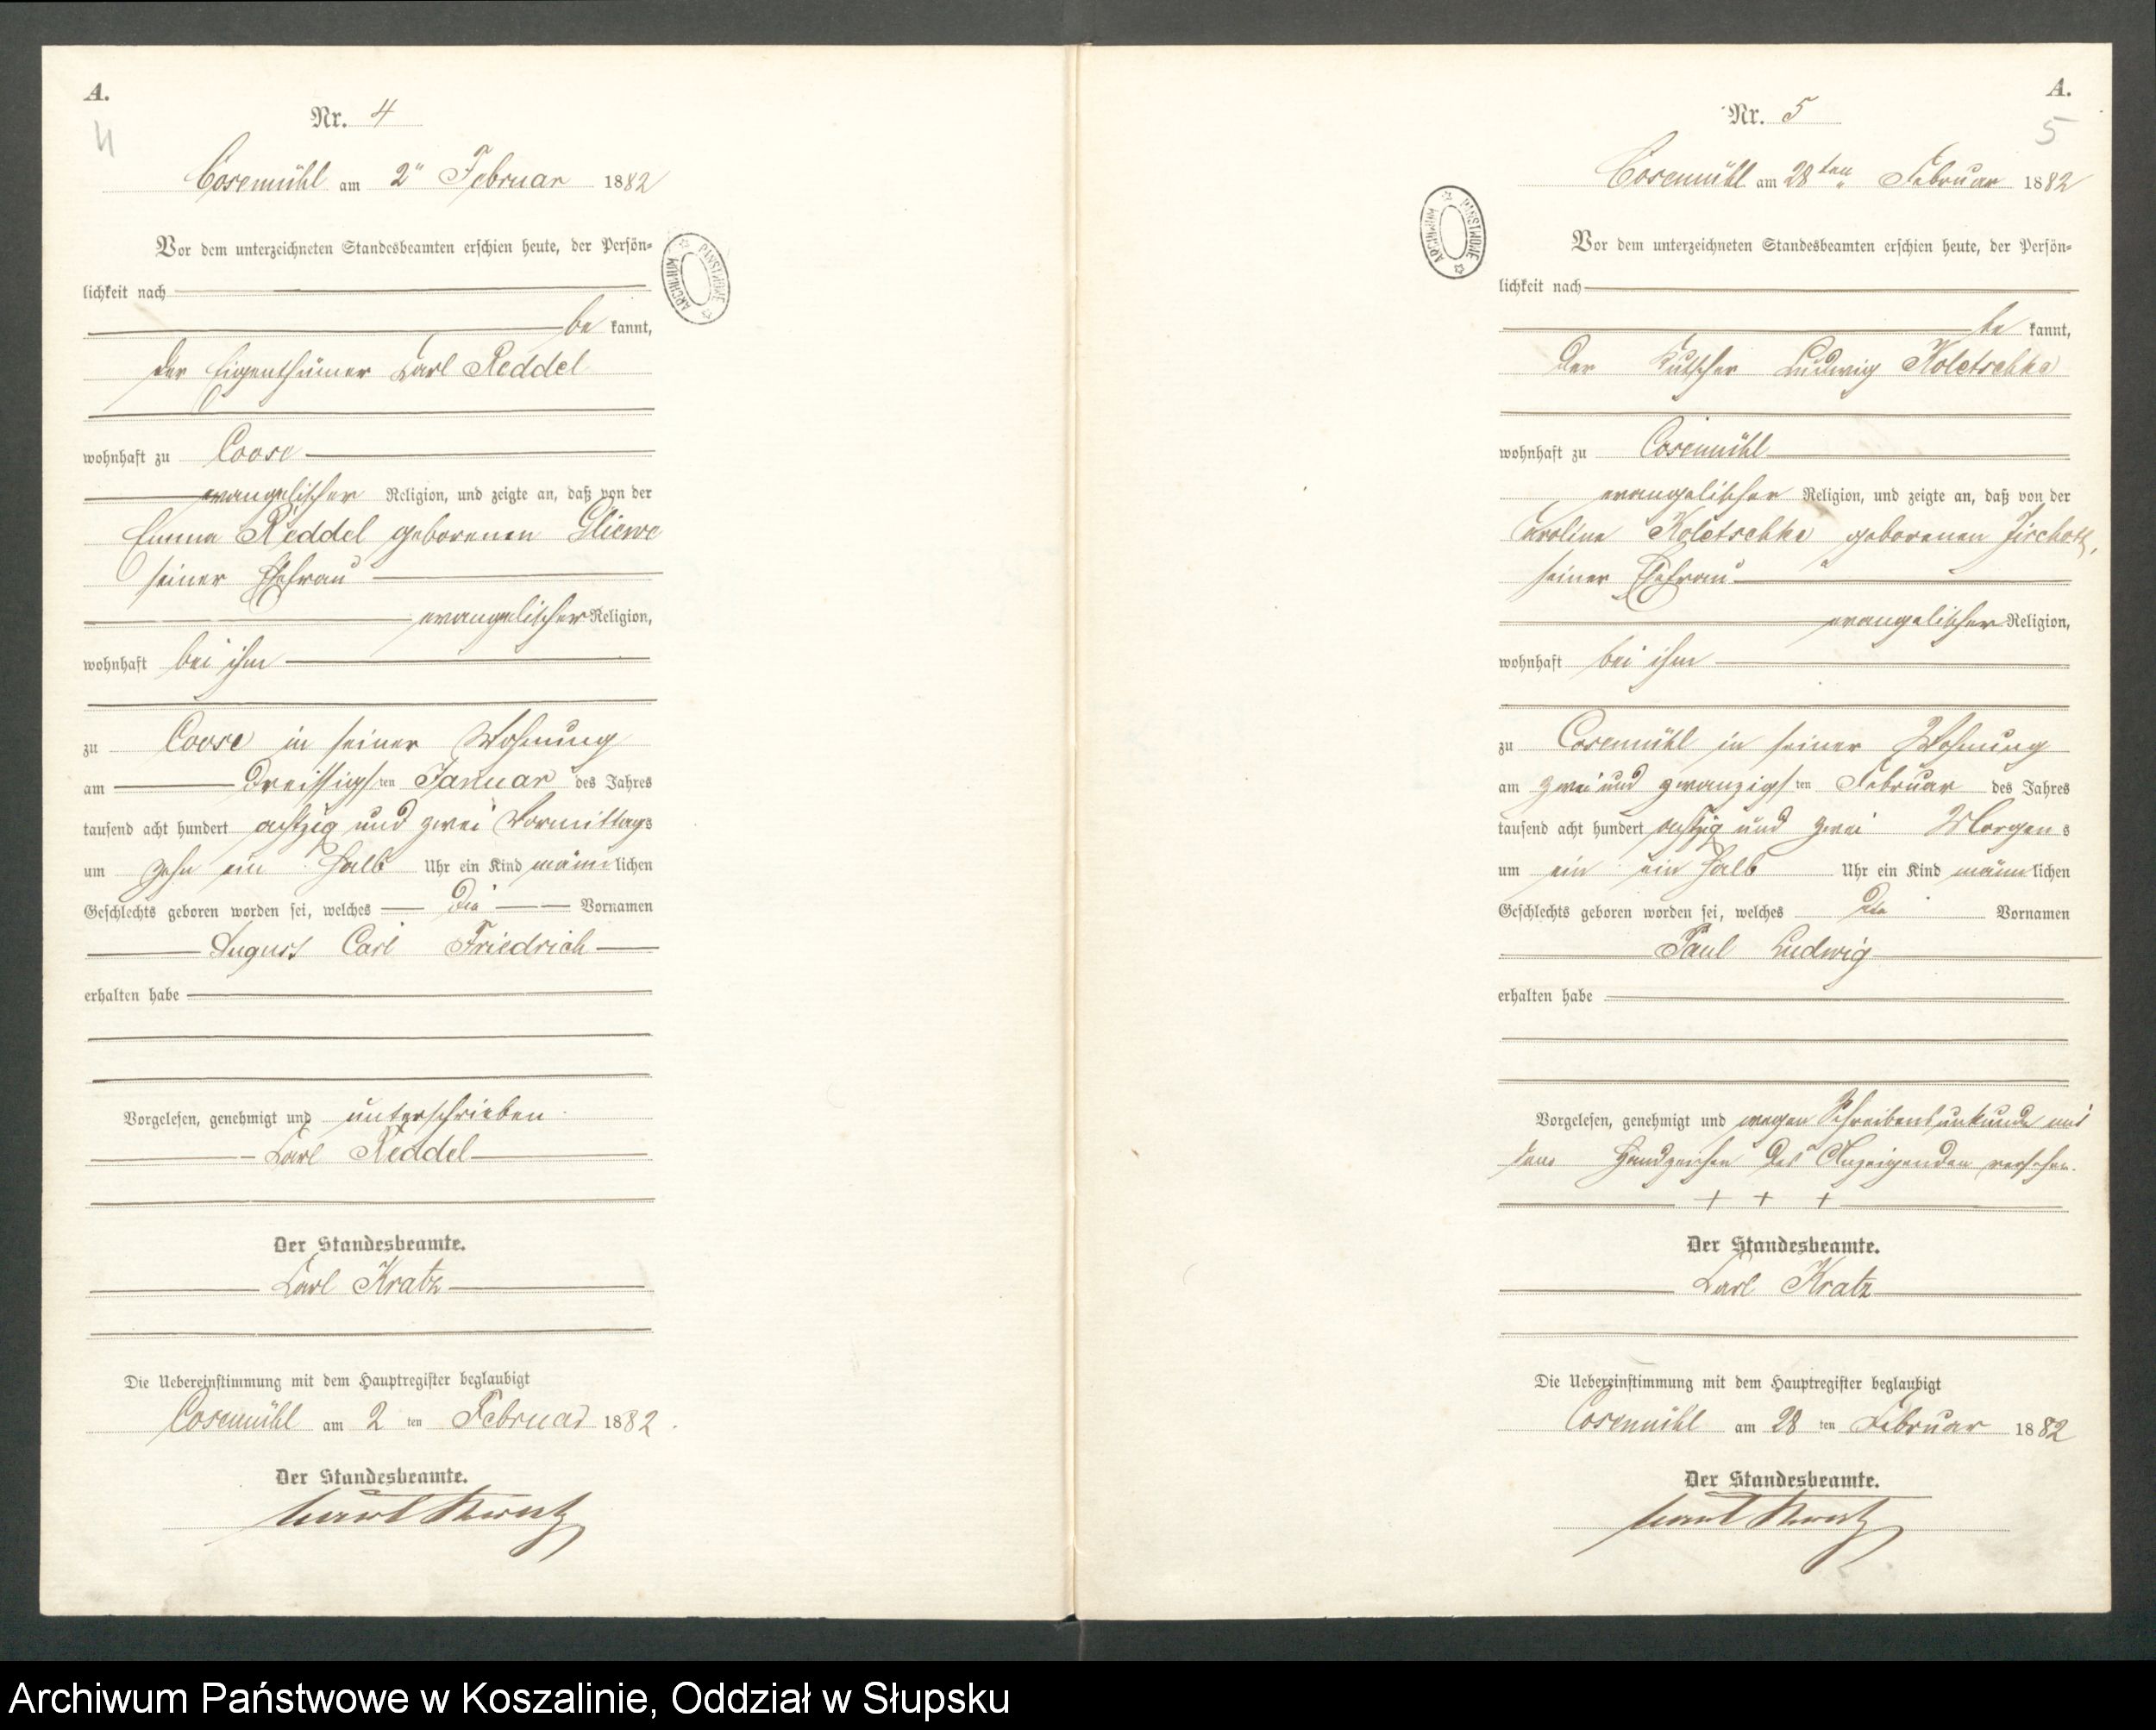 A.
4
Nr. 4
Cosemühl am 2" Februar 1882
Vor dem unterzeichneten Standesbeamten erschien heute, der Persön=
lichkeit nach
be kannt,
der Eigenthümer Carl Reddel
wohnhaft zu Coose
evangelischer Religion, und zeigte an, daß von der
Emma Reddel geborenen Gliewe
seiner Ehefrau
evangelischer Religion,
wohnhaft bei ihm
zu Coose in seiner Wohnung
am dreissigsten Januar des Jahres
tausend acht hundert achtzig und zwei Vormittags
um zehn ein halb Uhr ein Kind männlichen
Geschlechts geboren worden sei, welches die Vornamen
August Carl Friedrich
erhalten habe
Vorgelesen, genehmigt und unterschrieben
Carl Reddel
Der Standesbeamte.
Carl Kratz
Die Uebereinstimmung mit dem Hauptregister beglaubigt
Cosemühl am 2 ten Februar 1882.
Der Standesbeamte.
Carl Kratz
ARCHIWUM PAŃSTWOWE
A.
5
Nr. 5
Cosemühl am 28ten Februar 1882
ARCHIWUM PAŃSTWOWE
Vor dem unterzeichneten Standesbeamten erschien heute, der Persön=
lichkeit nach
be kannt,
der Kutscher Ludwig Koletschke
wohnhaft zu Cosemühl
evangelischer Religion, und zeigte an, daß von der
Caroline Koletschke geborenen
seiner Ehefrau
evangelischer Religion,
wohnhaft bei ihm
zu Cosemühl in seiner Wohnung
am zwei und zwanzigsten Februar des Jahres
tausend acht hundert achtzig und zwei Morgens
um ein ein halb Uhr ein Kind männlichen
Geschlechts geboren worden sei, welches die Vornamen
Paul Ludwig
erhalten habe
Vorgelesen, genehmigt und wegen Schreibensunkunde mit
dem Handzeichen des Anzeigenden versehen.
+ + +
Der Standesbeamte.
Carl Kratz
Die Uebereinstimmung mit dem Hauptregister beglaubigt
Cosemühl am 28 ten Februar 1882
Der Standesbeamte.
Carl Kratz
Archiwum Państwowe w Koszalinie, Oddział w Słupsku